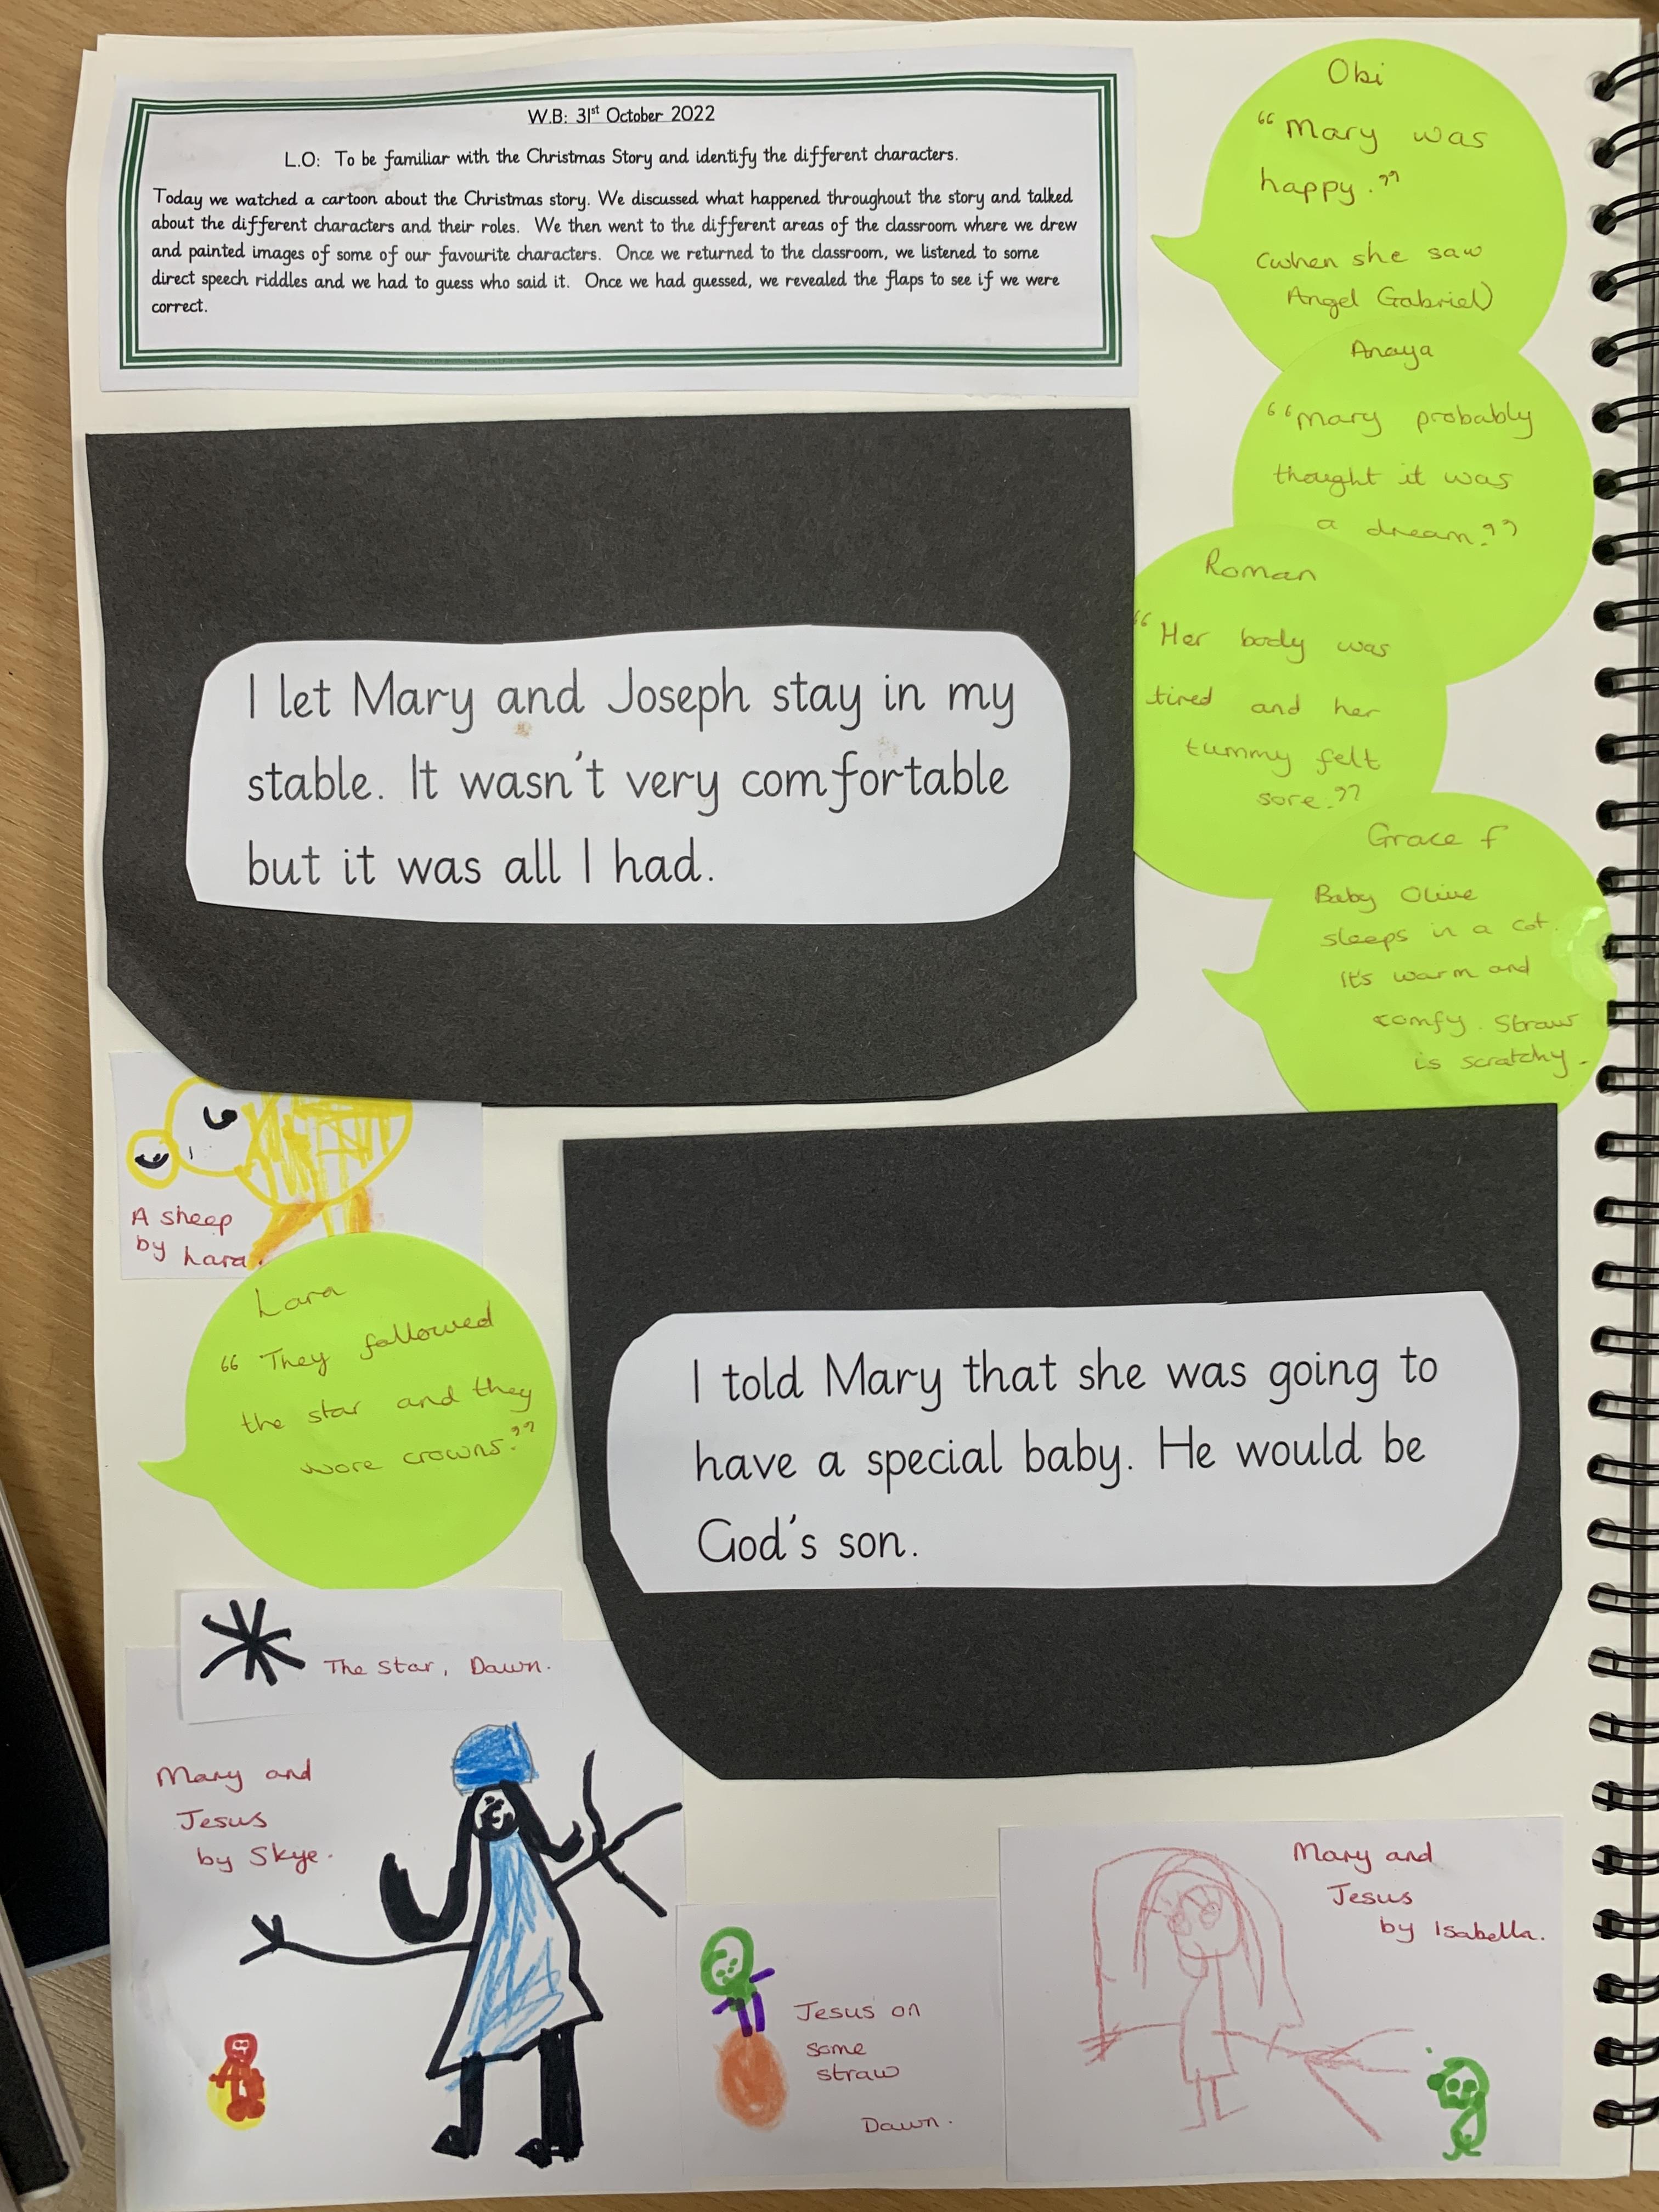 W.B: 31st October 2022
L.O: To be familiar with the Christmas Story and identify the different characters.
Today we watched a cartoon about the Christmas story. We discussed what happened throughout the story and talked
about the different characters and their roles. We then went to the different areas of the classroom where we drew
and painted images of some of our favourite characters. Once we returned to the classroom, we listened to some
direct speech riddles and we had to guess who said it. Once we had guessed, we revealed the flaps to see if we were
correct.
Obi
"Mary was
happy."
(when she saw
Angel Gabriel)
Anaya
"Mary probably
thought it was
a dream."
Roman
"Her body was
tired and her
tummy felt
sore."
Grace f
Baby Olive
sleeps in a cot.
It's warm and
comfy. Straw
is scratchy.
I let Mary and Joseph stay in my
stable. It wasn't very comfortable
but it was all I had.
A sheep
by Lara.
Lara
"They followed
the star and they
wore crowns."
I told Mary that she was going to
have a special baby. He would be
God's son.
The Star, Dawn.
Mary and
Jesus
by Skye.
Jesus on
some
straw
Dawn.
Mary and
Jesus
by Isabella.